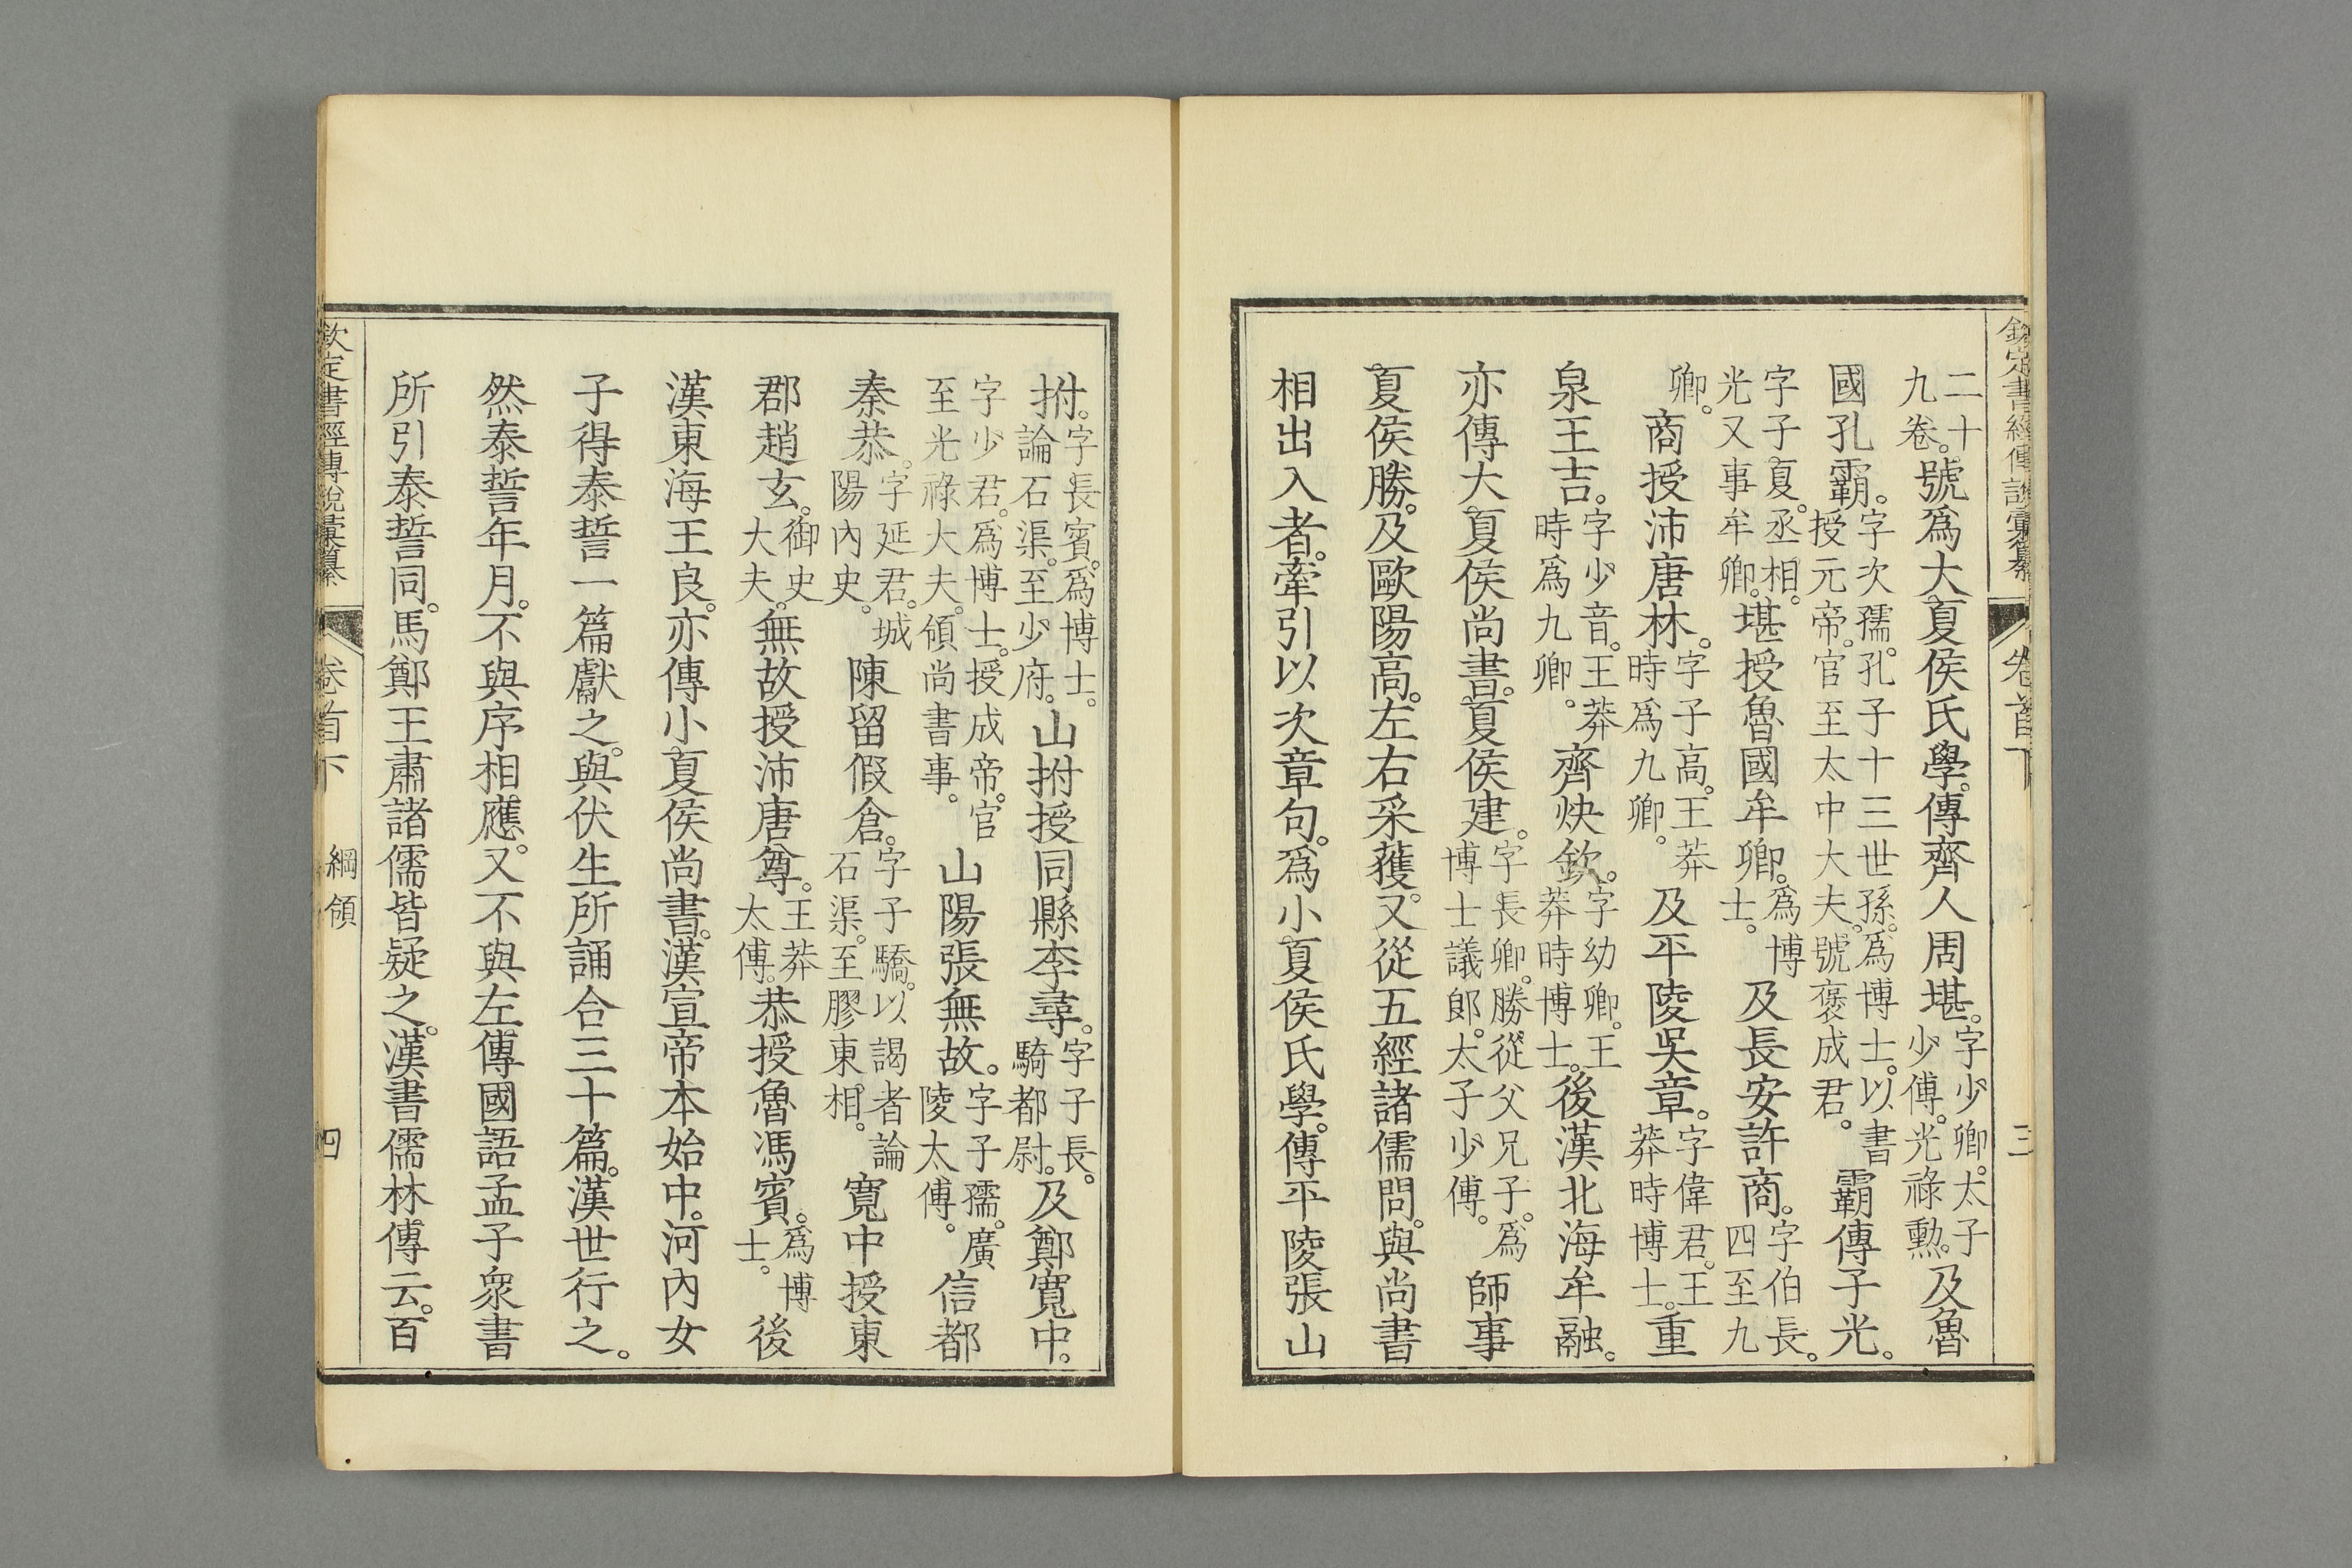 欽定書經傳說彙纂 卷首下 三
二十九卷。號爲大夏侯氏學。傳齊人周堪。字少卿。太子少傅。光祿勳。及魯
國孔霸。字次孺。孔子十三世孫。爲博士。以書授元帝。官至太中大夫。號褒成君。霸傳子光。
字子夏。丞相。光又事牟卿。堪授魯國牟卿。爲博士。及長安許商。字伯長。四至九
卿。商授沛唐林。字子高。王莽時爲九卿。及平陵吳章。字偉君。王莽時博士。重
泉王吉。字少音。王莽時爲九卿。齊炔欽。字幼卿。王莽時博士。後漢北海牟融。
亦傳大夏侯尚書。夏侯建。字長卿。勝從父兄子。爲博士議郞。太子少傅。師事
夏侯勝。及歐陽高。左右采獲。又從五經諸儒問。與尚書
相出入者。牽引以次章句。爲小夏侯氏學。傳平陵張山
拊。字長賓。爲博士。論石渠。至少府。山拊授同縣李尋。字子長。騎都尉。及鄭寬中。
字少君。爲博士。授成帝。官至光祿大夫。領尚書事。山陽張無故。字子孺。廣陵太傅。信都
秦恭。字延君。城陽內史。陳留假倉。字子驕。以謁者論石渠。至膠東相。寬中授東
郡趙玄。御史大夫。無故授沛唐尊。王莽太傅。恭授魯馮賓。爲博士。後
漢東海王良。亦傳小夏侯尚書。漢宣帝本始中。河內女
子得泰誓一篇獻之。與伏生所誦合三十篇。漢世行之。
然泰誓年月。不與序相應。又不與左傳國語孟子衆書
所引泰誓同。馬鄭王肅諸儒皆疑之。漢書儒林傳云。百
欽定書經傳說彙纂 卷首下 綱領 四